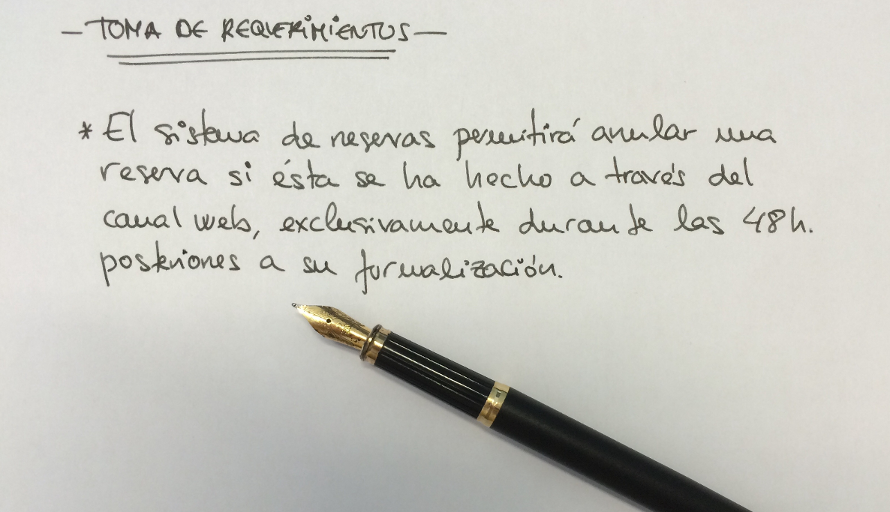 — TOMA DE REQUERIMIENTOS —
* El sistema de reservas permitirá anular una
reserva si ésta se ha hecho a través del
canal web, exclusivamente durante las 48h.
posteriores a su formalización.